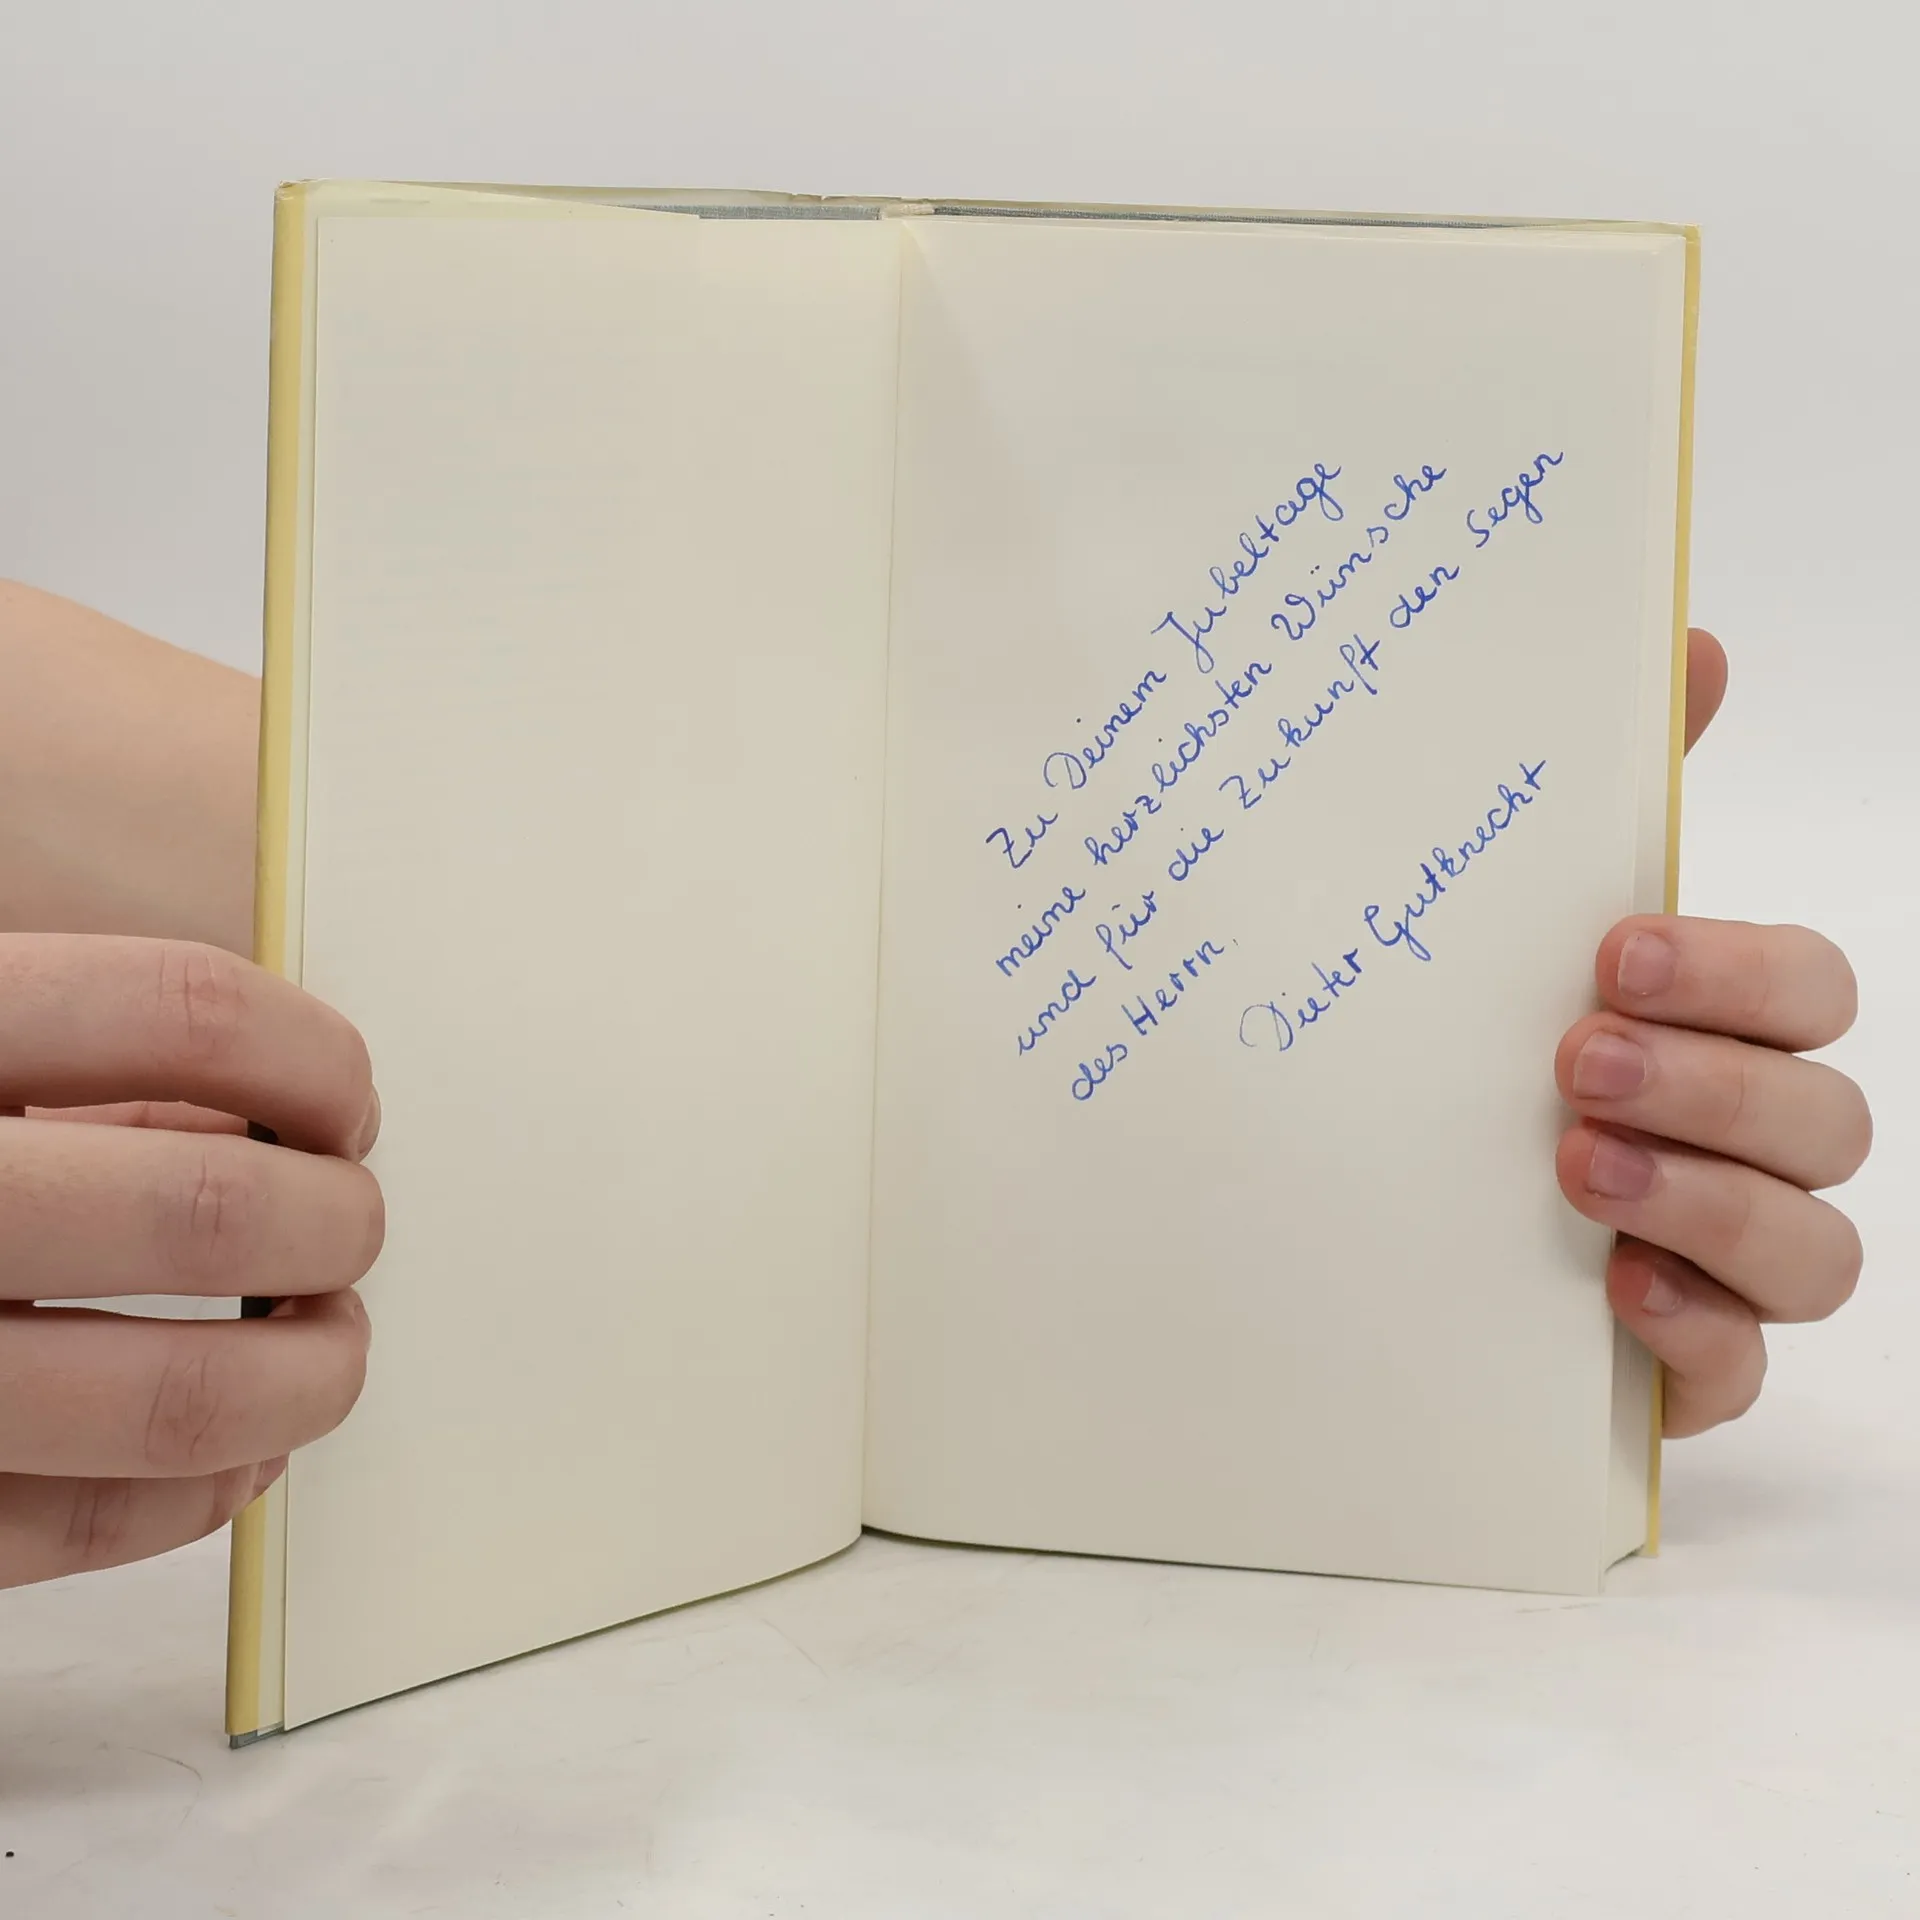 Zu Deinem Jubeltage
meine herzlichsten Wünsche
und für die Zukunft den Segen
des Herrn.
Dieter Gutknecht